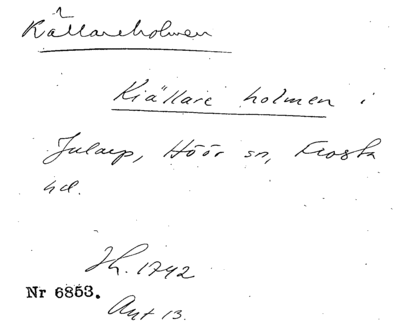 Källareholmen
Kiällare holmen i
Jularp, Höör sn, Frosta
hd.
Jh. 1742
Nr 6853.
Ant 13.